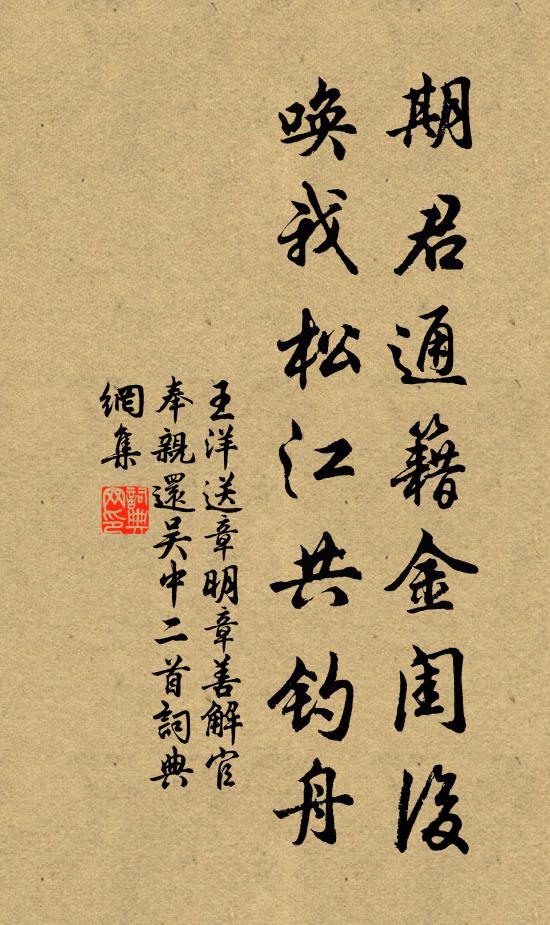 期君通籍金閨後
喚我松江共釣舟
王洋送章明章善解官
奉親還吳中二首詞典
網集
詞典
网印